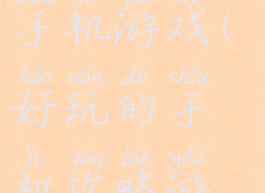 手机游戏(
hǎo wán de shǒu
好玩的手
jī gōng lüè yóu
机攻略游